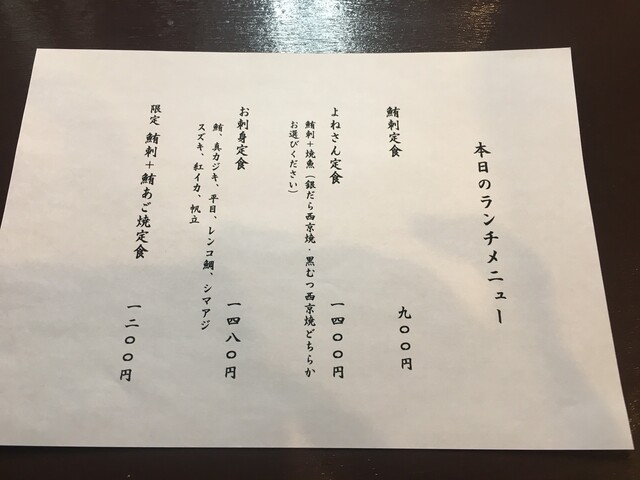 本日のランチメニュー
鮪刺定食 九〇〇円
よねさん定食 一四〇〇円
鮪刺＋焼魚（銀だら西京焼・黒むつ西京焼どちらか
お選びください）
お刺身定食 一四八〇円
鮪、真カジキ、平目、レンコ鯛、シマアジ
スズキ、紅イカ、帆立
限定 鮪刺＋鮪あご焼定食 一二〇〇円